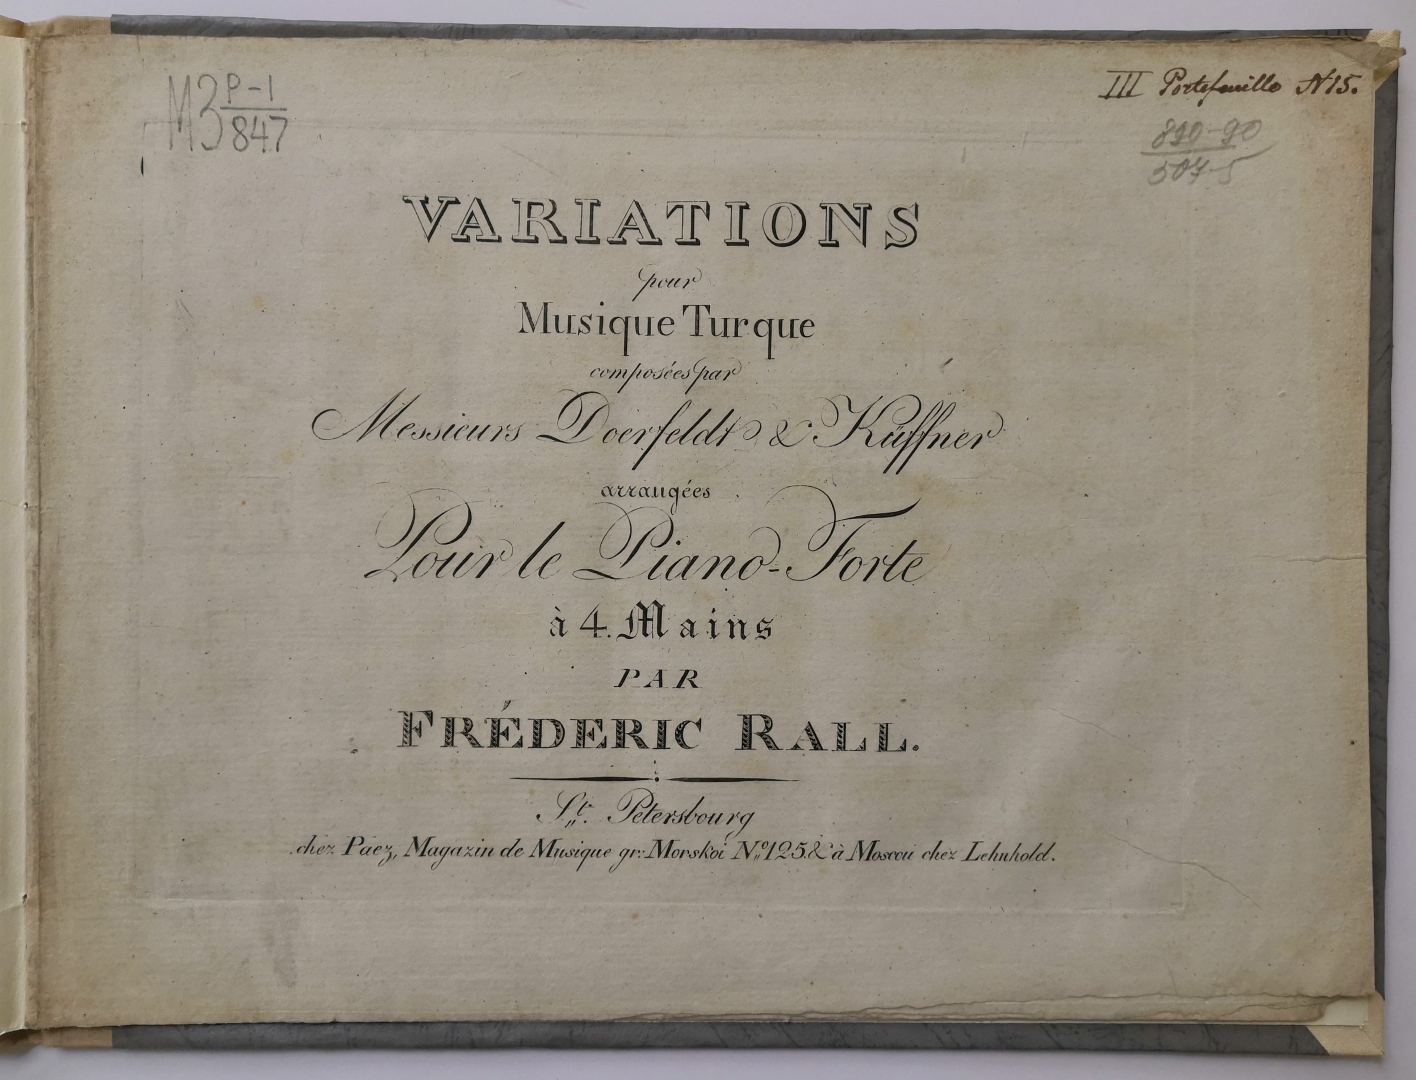 МЗ Р-1
847
III Portefeuille N15.
890-90
507-5
VARIATIONS
pour
Musique Turque
composées par
Messieurs Doerfeldt & Küffner
arrangées
Pour le Piano-Forte
à 4. Mains
PAR
FRÉDERIC RALL.
St. Petersbourg
chez Paez, Magazin de Musique gr: Morskoi No. 125. & à Moscou chez Lehnhold.